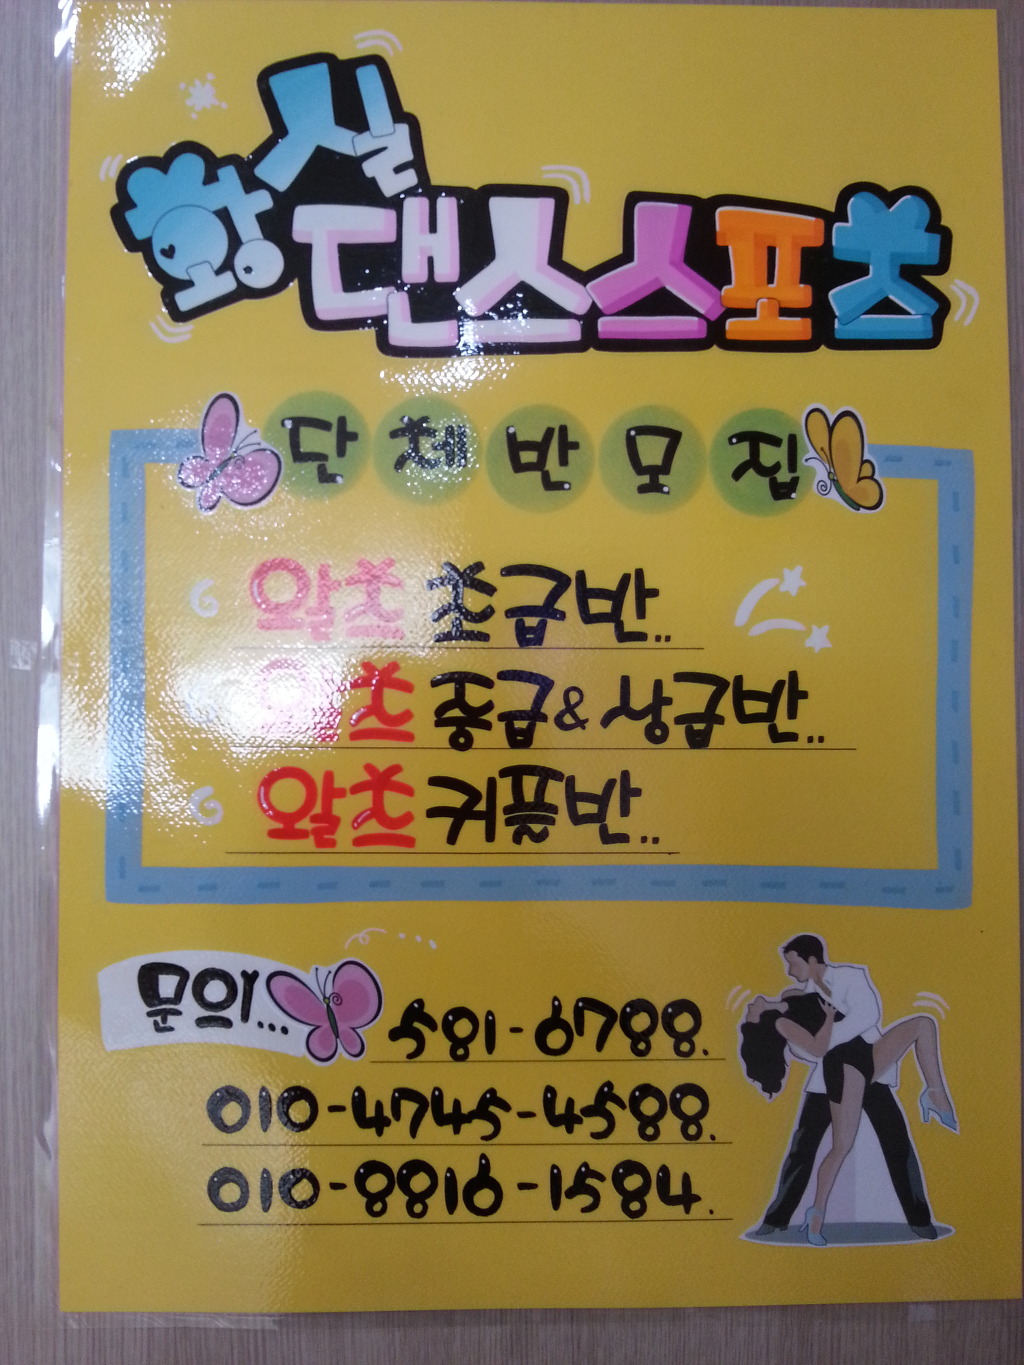 황실
댄스스포츠
단체반모집
왈츠 초급반..
왈츠 중급&상급반..
왈츠 커플반..
문의... 581-6788.
010-4745-4588.
010-8816-1584.